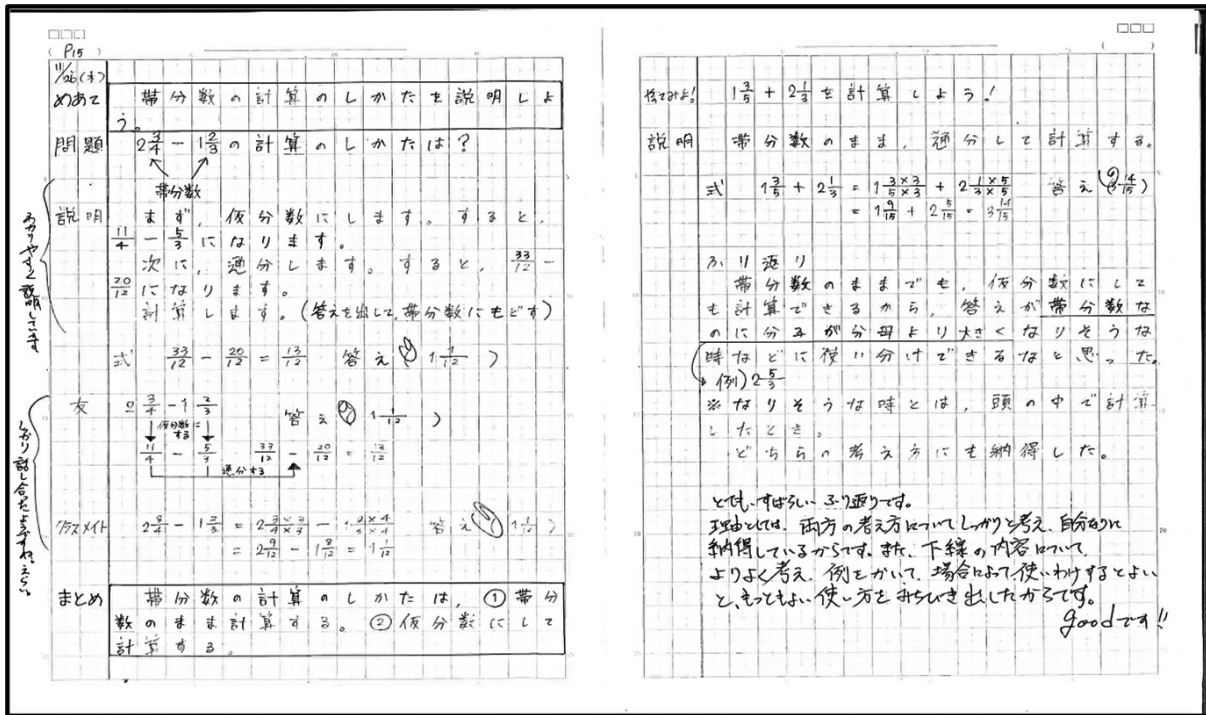 (P15)
11/26(木)
めあて 帯分数の計算のしかたを説明しよ
う。
問題 2 3/4 - 1 2/3 の計算のしかたは?
帯分数
わかりやすく説明しています
説明 まず、仮分数にします。すると、
11/4 - 5/3 になります。
次に、通分します。すると、33/12 -
20/12 になります。
計算します。(答えを出して、帯分数にもどす)
式 33/12 - 20/12 = 13/12 答え( 1 1/12 )
しっかり話し合ったようですね。えらい。
友 2 3/4 - 1 2/3 答え( 1 1/12 )
仮分数に
する
11/4 - 5/3 33/12 - 20/12 = 13/12
通分する
クラスメイト 2 3/4 - 1 2/3 = 2 3×3/4×3 - 1 2×4/3×4 答え( 1 1/12 )
= 2 9/12 - 1 8/12 = 1 1/12
まとめ 帯分数の計算のしかたは、①帯分
数のまま計算する。②仮分数にして
計算する。
1 3/5 + 2 1/3 を計算しよう!
説明 帯分数のまま、通分して計算する。
式 1 3/5 + 2 1/3 = 1 3×3/5×3 + 2 1×5/3×5 答え( 3 14/15 )
= 1 9/15 + 2 5/15 = 3 14/15
ふり返り
帯分数のままでも、仮分数にして
も計算できるから、答えが帯分数な
のに分子が分母より大きくなりそうな
時などに使い分けできるなと思った。
例) 2 5/3
※なりそうな時とは、頭の中で計算
したとき。
どちらの考え方にも納得した。
とても、すばらしい ふり返りです。
理由としては、両方の考え方についてしっかりと考え、自分なりに
納得しているからです。また、下線の内容について、
よりよく考え、例をかいて、場合によって使いわけするとよい
と、もっともよい使い方をみちびき出したからです。
goodです!!